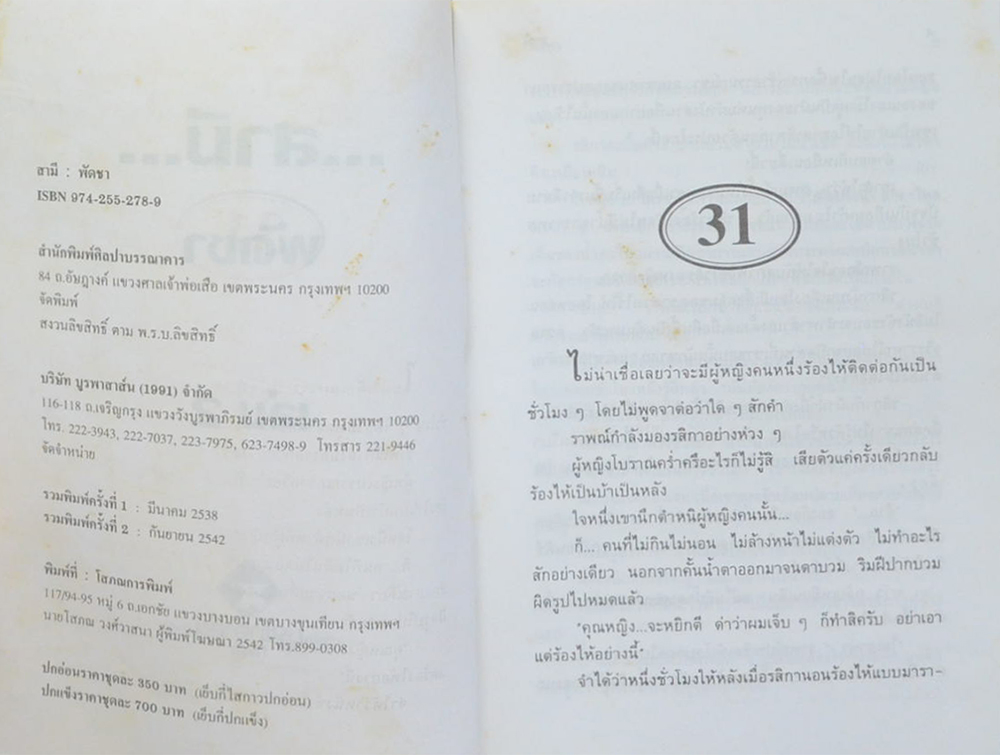 สามี : พัดชา
ISBN 974-255-278-9
สำนักพิมพ์ศิลปาบรรณาคาร
84 ถ.อัษฎางค์ แขวงศาลเจ้าพ่อเสือ เขตพระนคร กรุงเทพฯ 10200
จัดพิมพ์
สงวนลิขสิทธิ์ ตาม พ.ร.บ.ลิขสิทธิ์
บริษัท บูรพาสาส์น (1991) จำกัด
116-118 ถ.เจริญกรุง แขวงวังบูรพาภิรมย์ เขตพระนคร กรุงเทพฯ 10200
โทร. 222-3943, 222-7037, 223-7975, 623-7498-9 โทรสาร 221-9446
จัดจำหน่าย
รวมพิมพ์ครั้งที่ 1 : มีนาคม 2538
รวมพิมพ์ครั้งที่ 2 : กันยายน 2542
พิมพ์ที่ : โสภณการพิมพ์
117/94-95 หมู่ 6 ถ.เอกชัย แขวงบางบอน เขตบางขุนเทียน กรุงเทพฯ
นายโสภณ วงศ์วาสนา ผู้พิมพ์โฆษณา 2542 โทร.899-0308
ปกอ่อนราคาชุดละ 350 บาท (เย็บกี่ไสกาวปกอ่อน)
ปกแข็งราคาชุดละ 700 บาท (เย็บกี่ปกแข็ง)
31
ไม่น่าเชื่อเลยว่าจะมีผู้หญิงคนหนึ่งร้องไห้ติดต่อกันเป็น
ชั่วโมง ๆ โดยไม่พูดจาต่อว่าใด ๆ สักคำ
ราพณ์กำลังมองรสิกาอย่างห่วง ๆ
ผู้หญิงโบราณคร่ำครึอะไรก็ไม่รู้สิ เสียตัวแค่ครั้งเดียวกลับ
ร้องไห้เป็นบ้าเป็นหลัง
ใจหนึ่งเขานึกตำหนิผู้หญิงคนนั้น...
ก็... คนที่ไม่กินไม่นอน ไม่ล้างหน้าไม่แต่งตัว ไม่ทำอะไร
สักอย่างเดียว นอกจากคั้นน้ำตาออกมาจนตาบวม ริมฝีปากบวม
ผิดรูปไปหมดแล้ว
"คุณหญิง...จะหยิกตี ด่าว่าผมเจ็บ ๆ ก็ทำสิครับ อย่าเอา
แต่ร้องไห้อย่างนี้"
จำได้ว่าหนึ่งชั่วโมงให้หลังเมื่อรสิกานอนร้องไห้แบบมารา-